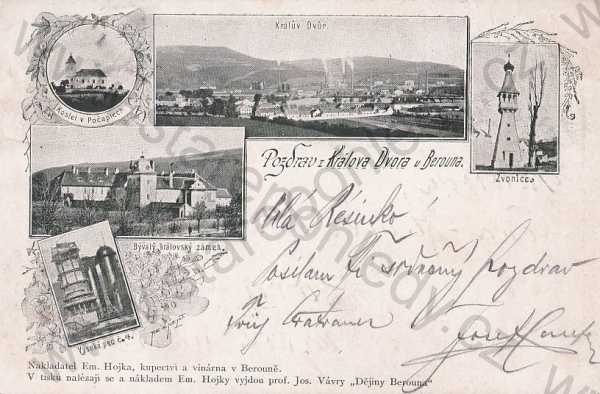 Králův Dvůr.
Kostel v Počaplech
Zvonice.
Pozdrav z Králova Dvora u Berouna.
Bývalý královský zámek.
Vysoká pec č. 4.
Milá
Posílám Ti srdečný pozdrav
Tvůj
Josef
Nakladatel Em. Hojka, kupectví a vinárna v Berouně.
V tisku nalézají se a nákladem Em. Hojky vyjdou prof. Jos. Vávry „Dějiny Berouna"